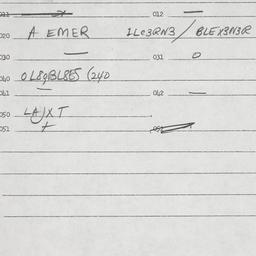 011 012
020 A EMER 1L03RN3 / BLEX3N3R
030 031 0
040 OL89BL8E5 (240
041 042
050 LAJXT
051